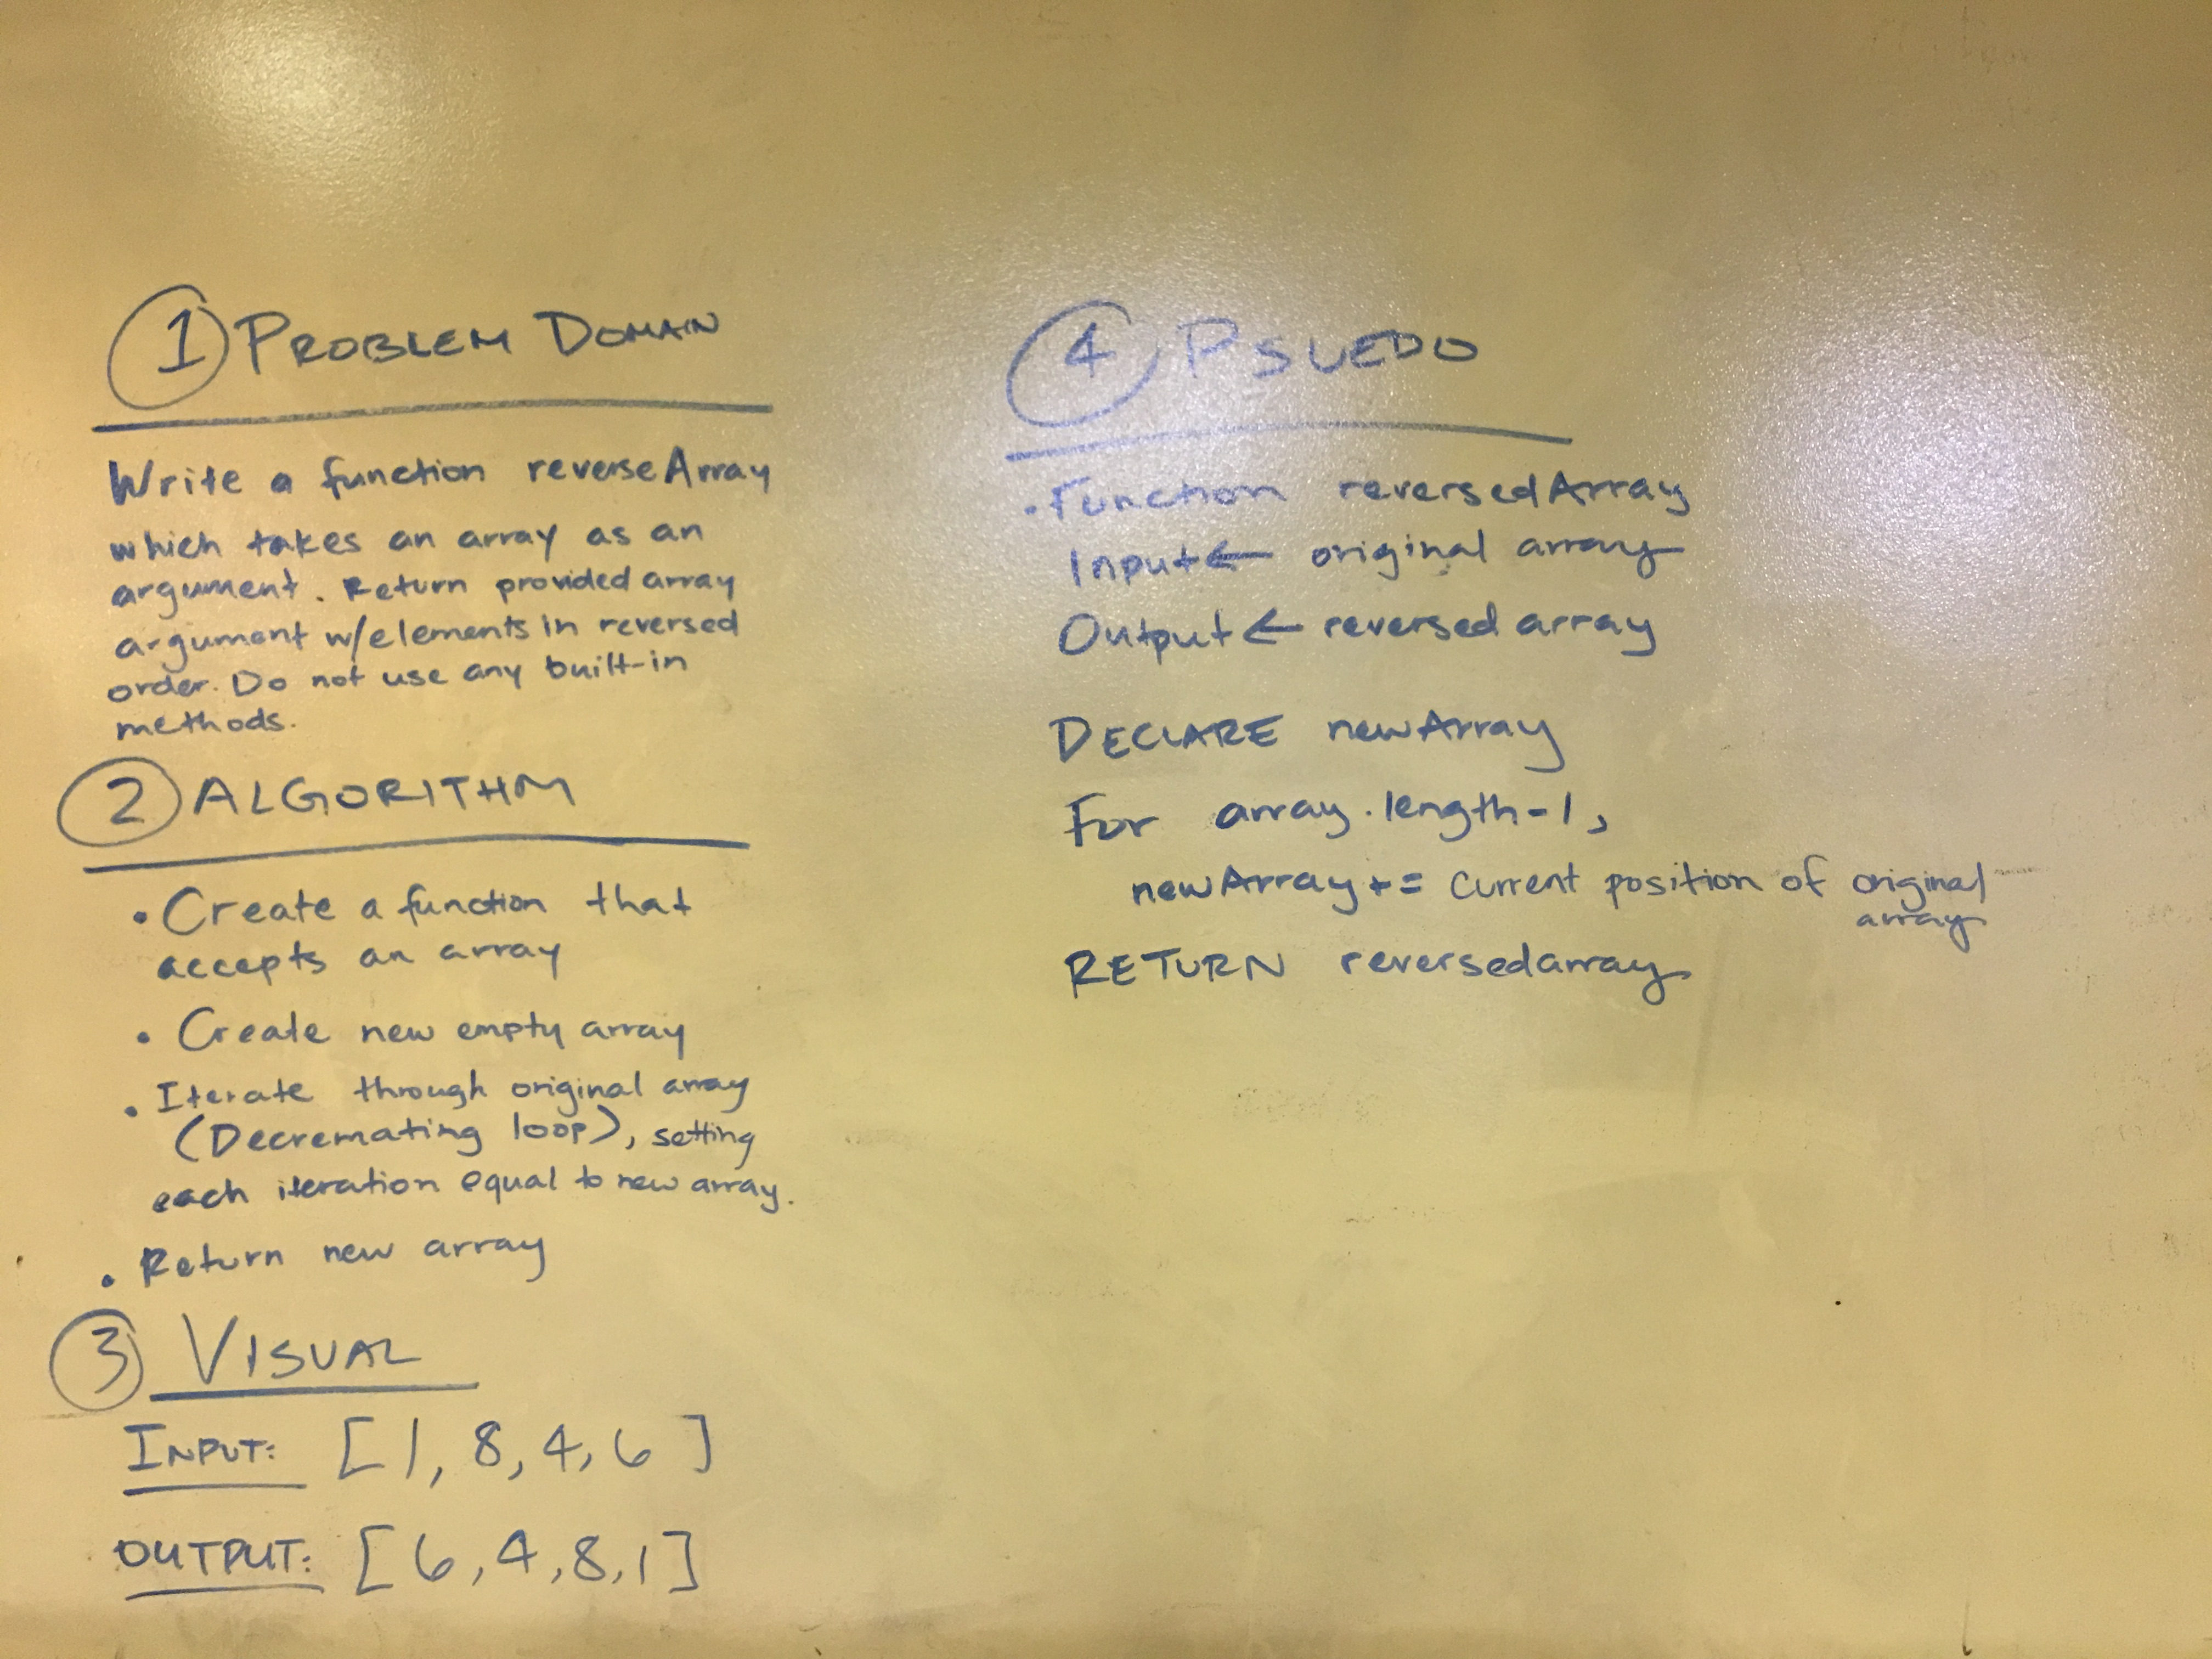 1 PROBLEM DOMAIN
Write a function reverseArray
which takes an array as an
argument. Return provided array
argument w/elements in reversed
order. Do not use any built-in
methods.
2 ALGORITHM
• Create a function that
accepts an array
• Create new empty array
• Iterate through original array
(Decremating loop), setting
each iteration equal to new array.
• Return new array
3 VISUAL
INPUT: [1, 8, 4, 6]
OUTPUT: [6, 4, 8, 1]
4 PSUEDO
• Function reversedArray
Input ← original array
Output ← reversed array
DECLARE newArray
For array.length-1,
newArray += current position of original
array
RETURN reversedarray